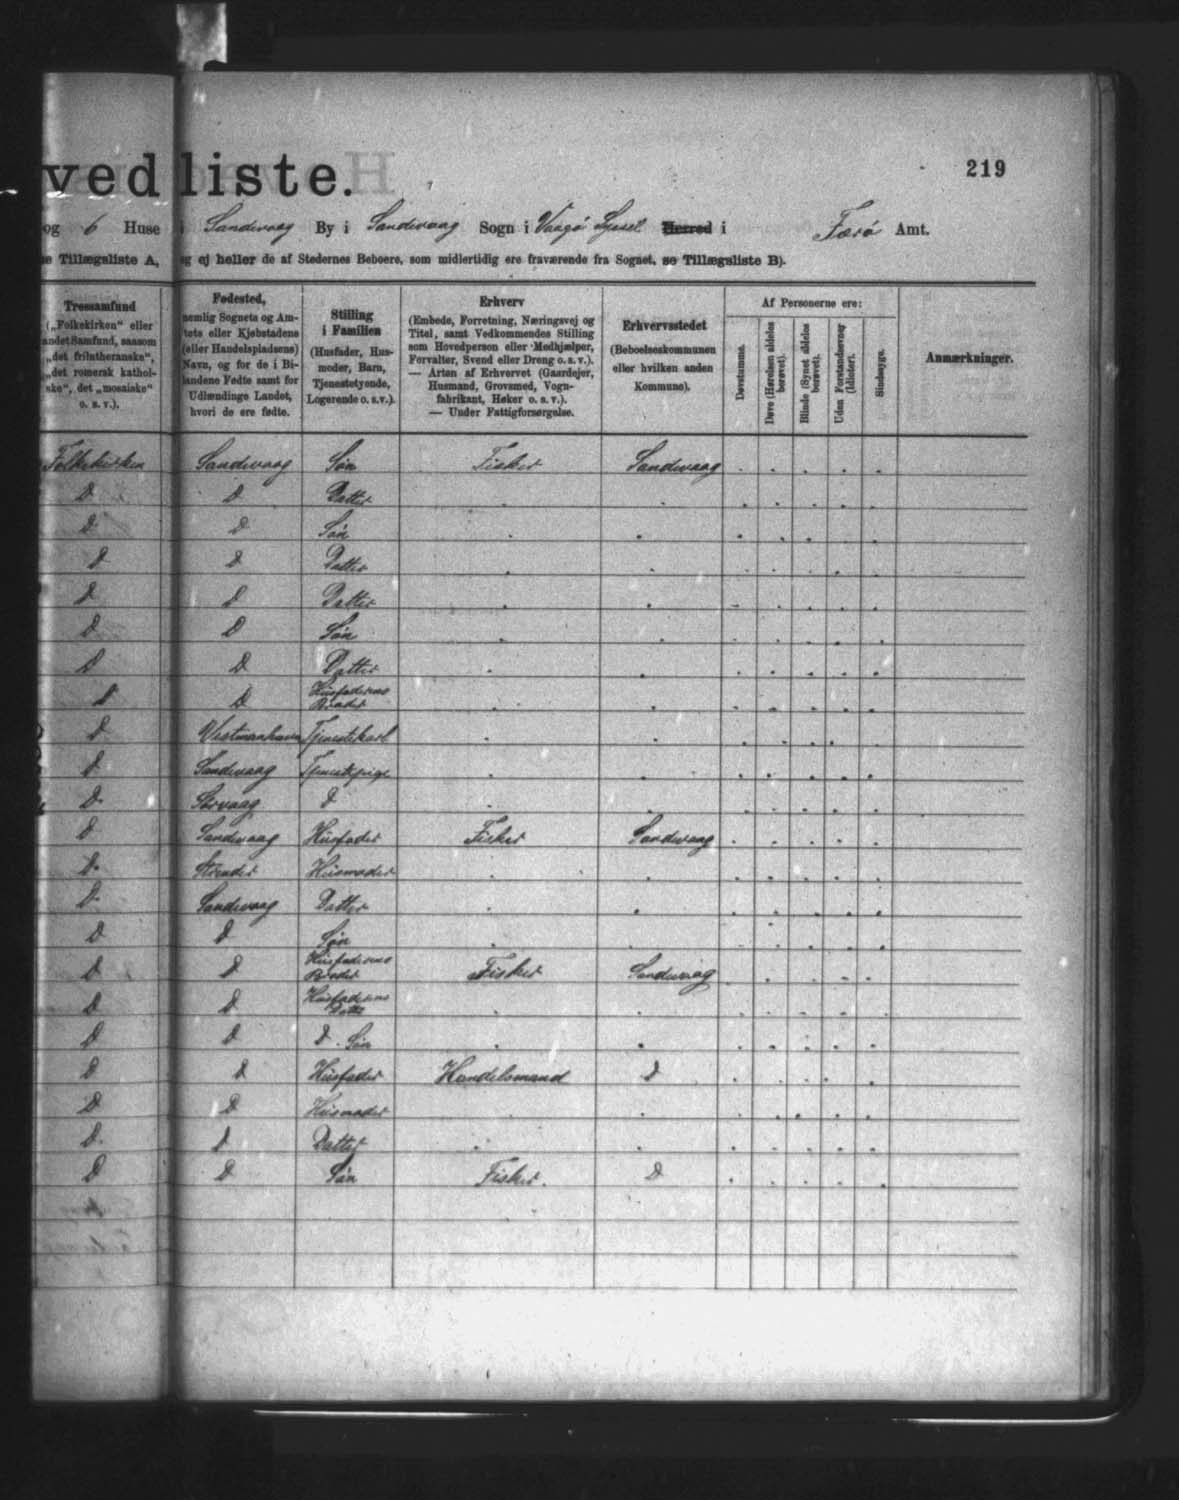 vedliste.
219
og 6 Huse i Sandevaag By i Sandevaag Sogn i Vaagø Syssel Herred i Færø Amt.
se Tillægsliste A, og ej heller de af Stedernes Beboere, som midlertidig ere fraværende fra Sognet, se Tillægsliste B).
Trossamfund
(„Folkekirken" eller
andet Samfund, saasom
„det frilutheranske",
„det romersk kathol-
ske", det „mosaiske"
o. s. v.).
Fødested,
nemlig Sognets og Am-
tets eller Kjøbstadens
(eller Handelspladsens)
Navn, og for de i Bi-
landene Fødte samt for
Udlændinge Landet,
hvori de ere fødte.
Stilling
i Familien
(Husfader, Hus-
moder, Barn,
Tjenestetyende,
Logerende o. s. v.).
Erhverv
(Embede, Forretning, Næringsvej og
Titel, samt Vedkommendes Stilling
som Hovedperson eller Medhjælper,
Forvalter, Svend eller Dreng o. s. v.).
— Arten af Erhvervet (Gaardejer,
Husmand, Grovsmed, Vogn-
fabrikant, Høker o. s. v.).
— Under Fattigforsørgelse.
Erhvervsstedet
(Beboelseskommunen
eller hvilken anden
Kommune).
Af Personerne ere:
Døvstumme.
Døve (Hørelsen aldeles
berøvet).
Blinde (Synet aldeles
berøvet).
Uden Forstandsevner
(Idioter).
Sindssyge.
Anmærkninger.
Folkekirken Sandevaag Søn Fisker Sandevaag
D D Datter
D D Søn
D D Datter
D D Datter
D D Søn
D D Datter
D D Husfaderens Broder
D Vestmanhavn Tjenestekarl
D Sandevaag Tjenestepige
D Sørvaag D
D Sandevaag Husfader Fisker Sandevaag
D Strender Husmoder
D Sandevaag Datter
D D Søn
D D Husfaderens Broder Fisker Sandevaag
D D Husfaderens
D D D. Søn
D D Husfader Handelsmand D
D D Husmoder
D D Datter
D D Søn Fisker. D